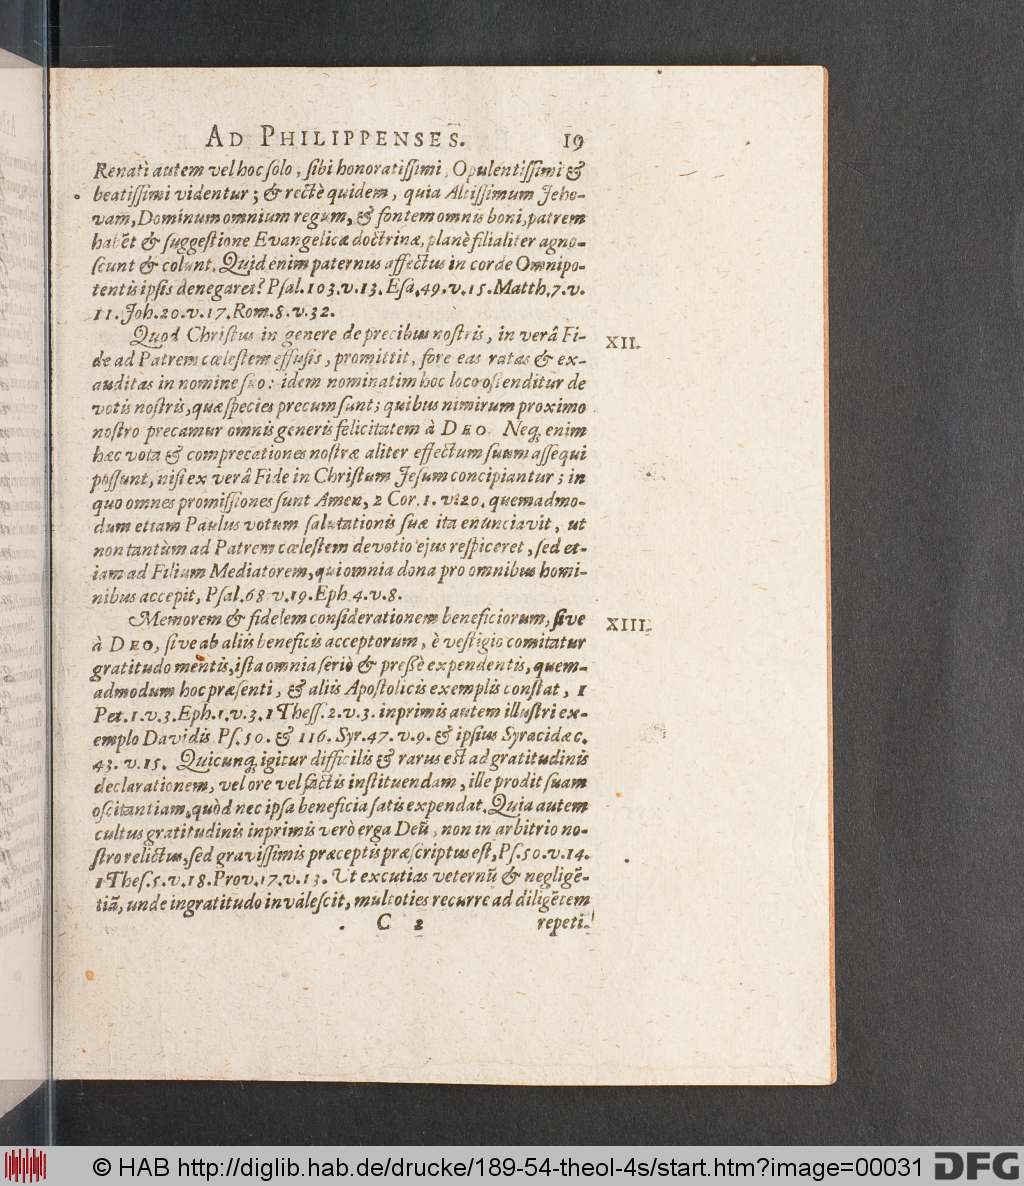 AD PHILIPPENSES. 19
Renati autem vel hoc solo, sibi honoratissimi, Opulentissimi &
beatissimi videntur; & rectè quidem, quia Altissimum Jeho-
vam, Dominum omnium regum, & fontem omnis boni, patrem
habēt & suggestione Evangelicæ doctrinæ, planè filialiter agno-
scunt & colunt. Quid enim paternus affectus in corde Omnipo-
tentis ipsis denegaret? Psal. 103. v. 13. Esa. 49. v. 15. Matth. 7. v.
11. Joh. 20. v. 17. Rom. 8. v. 32.
Quod Christus in genere de precibus nostris, in verâ Fi-
XII.
de ad Patrem cœlestem effusis, promittit, fore eas ratas & ex-
auditas in nomine suo: idem nominatim hoc loco ostenditur de
votis nostris, quæ species precum sunt; quibus nimirum proximo
nostro precamur omnis generis felicitatem à DEO. Neq; enim
hæc vota & comprecationes nostræ aliter effectum suum assequi
possunt, nisi ex verâ Fide in Christum Jesum concipiantur; in
quo omnes promissiones sunt Amen, 2 Cor. 1. v. 20. quemadmo-
dum etiam Paulus votum salutationis suæ ita enunciavit, ut
non tantùm ad Patrem cœlestem devotio ejus respiceret, sed et-
iam ad Filium Mediatorem, qui omnia dona pro omnibus homi-
nibus accepit, Psal. 68 v. 19. Eph. 4. v. 8.
Memorem & fidelem considerationem beneficiorum, sive
XIII.
à DEO, sive ab aliis beneficis acceptorum, è vestigio comitatur
gratitudo mentis, ista omnia seriò & presse expendentis, quem-
admodum hoc præsenti, & aliis Apostolicis exemplis constat, 1
Pet. 1. v. 3. Eph. 1. v. 3. 1 Thess. 2. v. 3. inprimis autem illustri ex-
emplo Davidis Ps. 50. & 116. Syr. 47. v. 9. & ipsius Syracidæ c.
43. v. 15. Quicunq; igitur difficilis & rarus est ad gratitudinis
declarationem, vel ore vel factis instituendam, ille prodit suam
oscitantiam, quòd nec ipsa beneficia satis expendat. Quia autem
cultus gratitudinis inprimis verò erga Deũ, non in arbitrio no-
stro relictus, sed gravissimis præceptis præscriptus est, Ps. 50. v. 14.
1 Thes. 5. v. 18. Prov. 17. v. 13. Ut excutias veternũ & negligē-
tiã, unde ingratitudo invalescit, multoties recurre ad diligētem
C 2 repeti-
© HAB http://diglib.hab.de/drucke/189-54-theol-4s/start.htm?image=00031 DFG